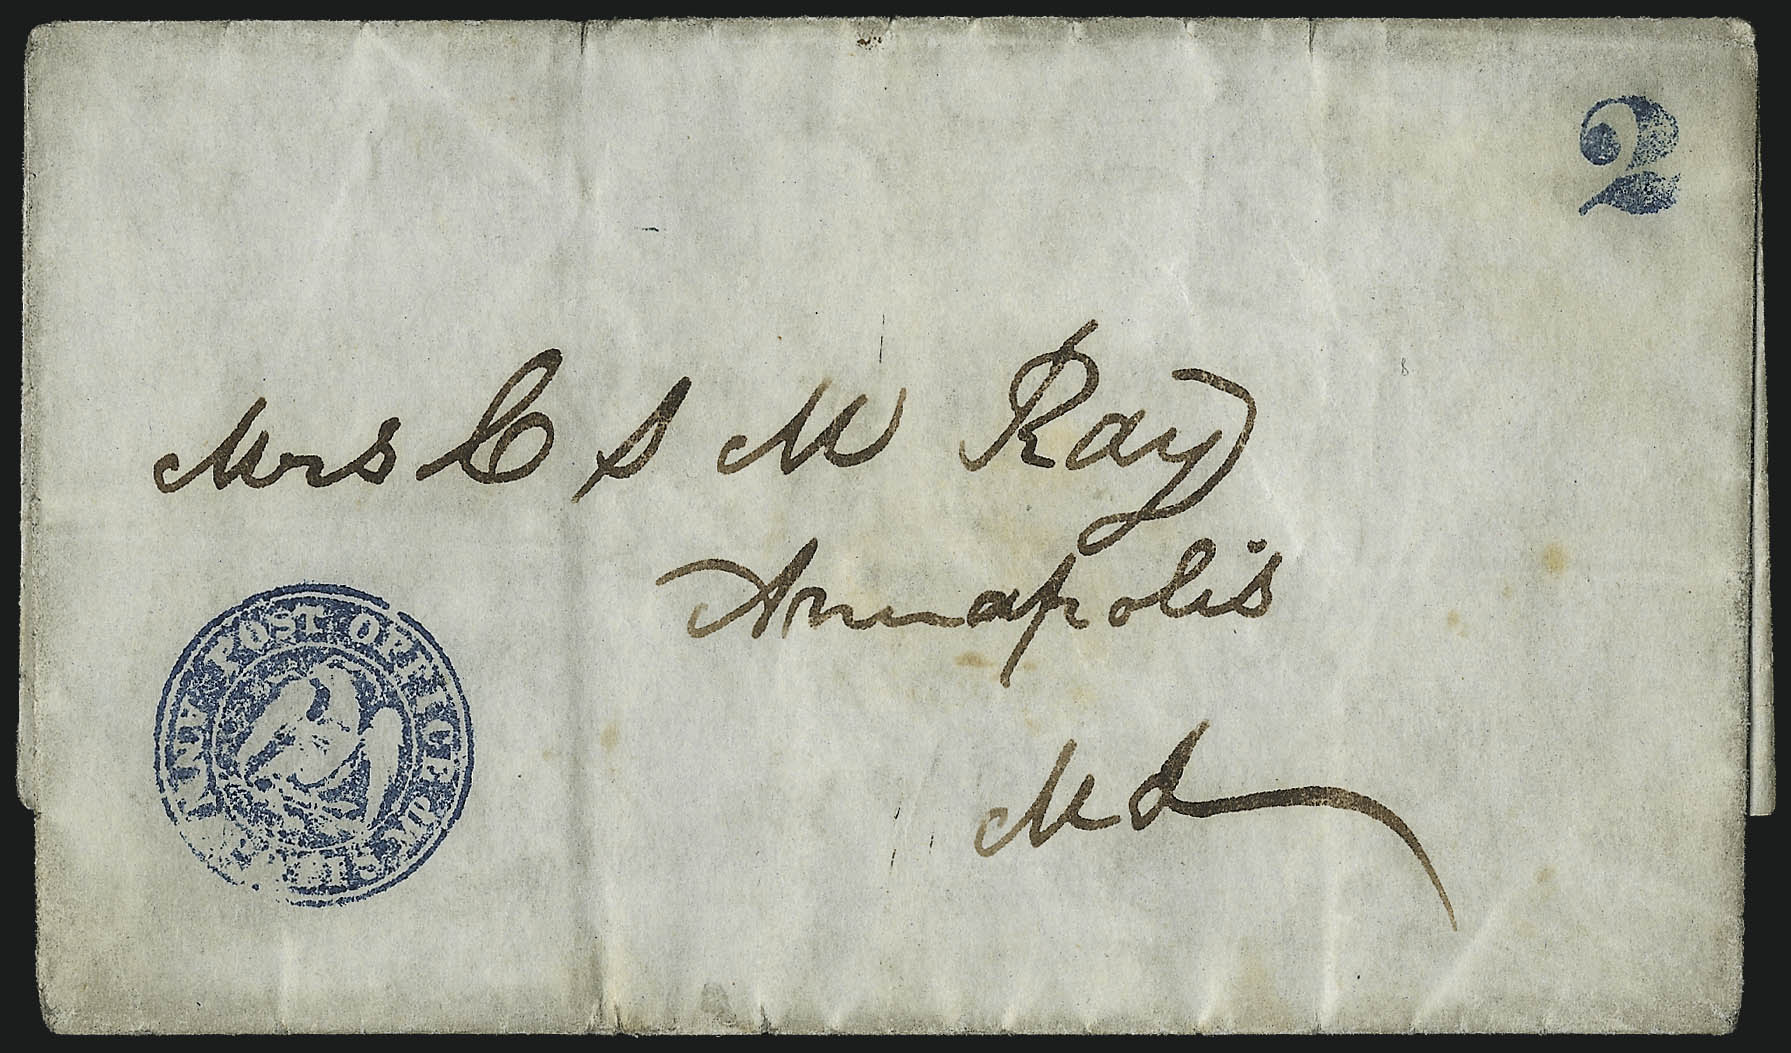 2
Mrs C S M Ray
Annapolis
Md
POST OFFICE